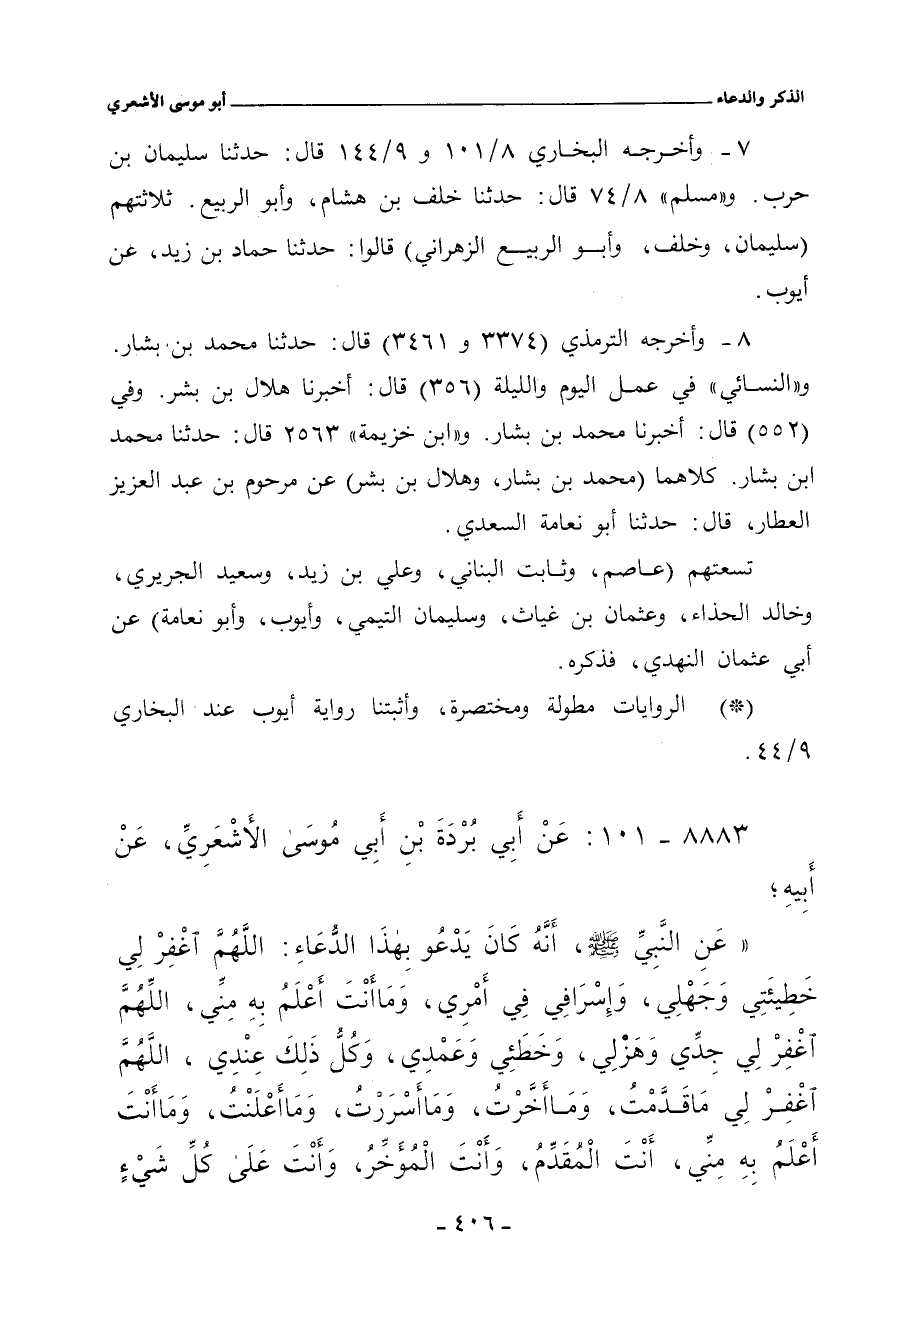 الذكر والدعاء ــــــــــ أبو موسى الأشعري
٧ - وأخرجه البخاري ١٠١/٨ و ١٤٤/٩ قال: حدثنا سليمان بن
حرب. و«مسلم» ٧٤/٨ قال: حدثنا خلف بن هشام، وأبو الربيع. ثلاثتهم
(سليمان، وخلف، وأبو الربيع الزهراني) قالوا: حدثنا حماد بن زيد، عن
أيوب.
٨ - وأخرجه الترمذي (٣٣٧٤ و ٣٤٦١) قال: حدثنا محمد بن بشار.
و«النسائي» في عمل اليوم والليلة (٣٥٦) قال: أخبرنا هلال بن بشر. وفي
(٥٥٢) قال: أخبرنا محمد بن بشار. و«ابن خزيمة» ٢٥٦٣ قال: حدثنا محمد
ابن بشار. كلاهما (محمد بن بشار، وهلال بن بشر) عن مرحوم بن عبد العزيز
العطار، قال: حدثنا أبو نعامة السعدي.
تسعتهم (عاصم، وثابت البناني، وعلي بن زيد، وسعيد الجريري،
وخالد الحذاء، وعثمان بن غياث، وسليمان التيمي، وأيوب، وأبو نعامة) عن
أبي عثمان النهدي، فذكره.
(*) الروايات مطولة ومختصرة، وأثبتنا رواية أيوب عند البخاري
٤٤/٩.
٨٨٨٣ - ١٠١: عَنْ أَبِي بُرْدَةَ بْنِ أَبِي مُوسَىٰ الأَشْعَرِيِّ، عَنْ
أَبِيهِ؛
« عَنِ النَّبِيِّ ﷺ، أَنَّهُ كَانَ يَدْعُو بِهَذَا الدُّعَاءِ: اللَّهُمَّ ٱغْفِرْ لِي
خَطِيئَتِي وَجَهْلِي، وَإِسْرَافِي فِي أَمْرِي، وَمَاأَنْتَ أَعْلَمُ بِهِ مِنِّي، اللَّهُمَّ
ٱغْفِرْ لِي جِدِّي وَهَزْلِي، وَخَطَئِي وَعَمْدِي، وَكُلُّ ذَلِكَ عِنْدِي ، اللَّهُمَّ
ٱغْفِرْ لِي مَاقَدَّمْتُ، وَمَاأَخَّرْتُ، وَمَاأَسْرَرْتُ، وَمَاأَعْلَنْتُ، وَمَاأَنْتَ
أَعْلَمُ بِهِ مِنِّي، أَنْتَ الْمُقَدِّمُ، وَأَنْتَ الْمُؤَخِّرُ، وَأَنْتَ عَلَىٰ كُلِّ شَيْءٍ
- ٤٠٦ -